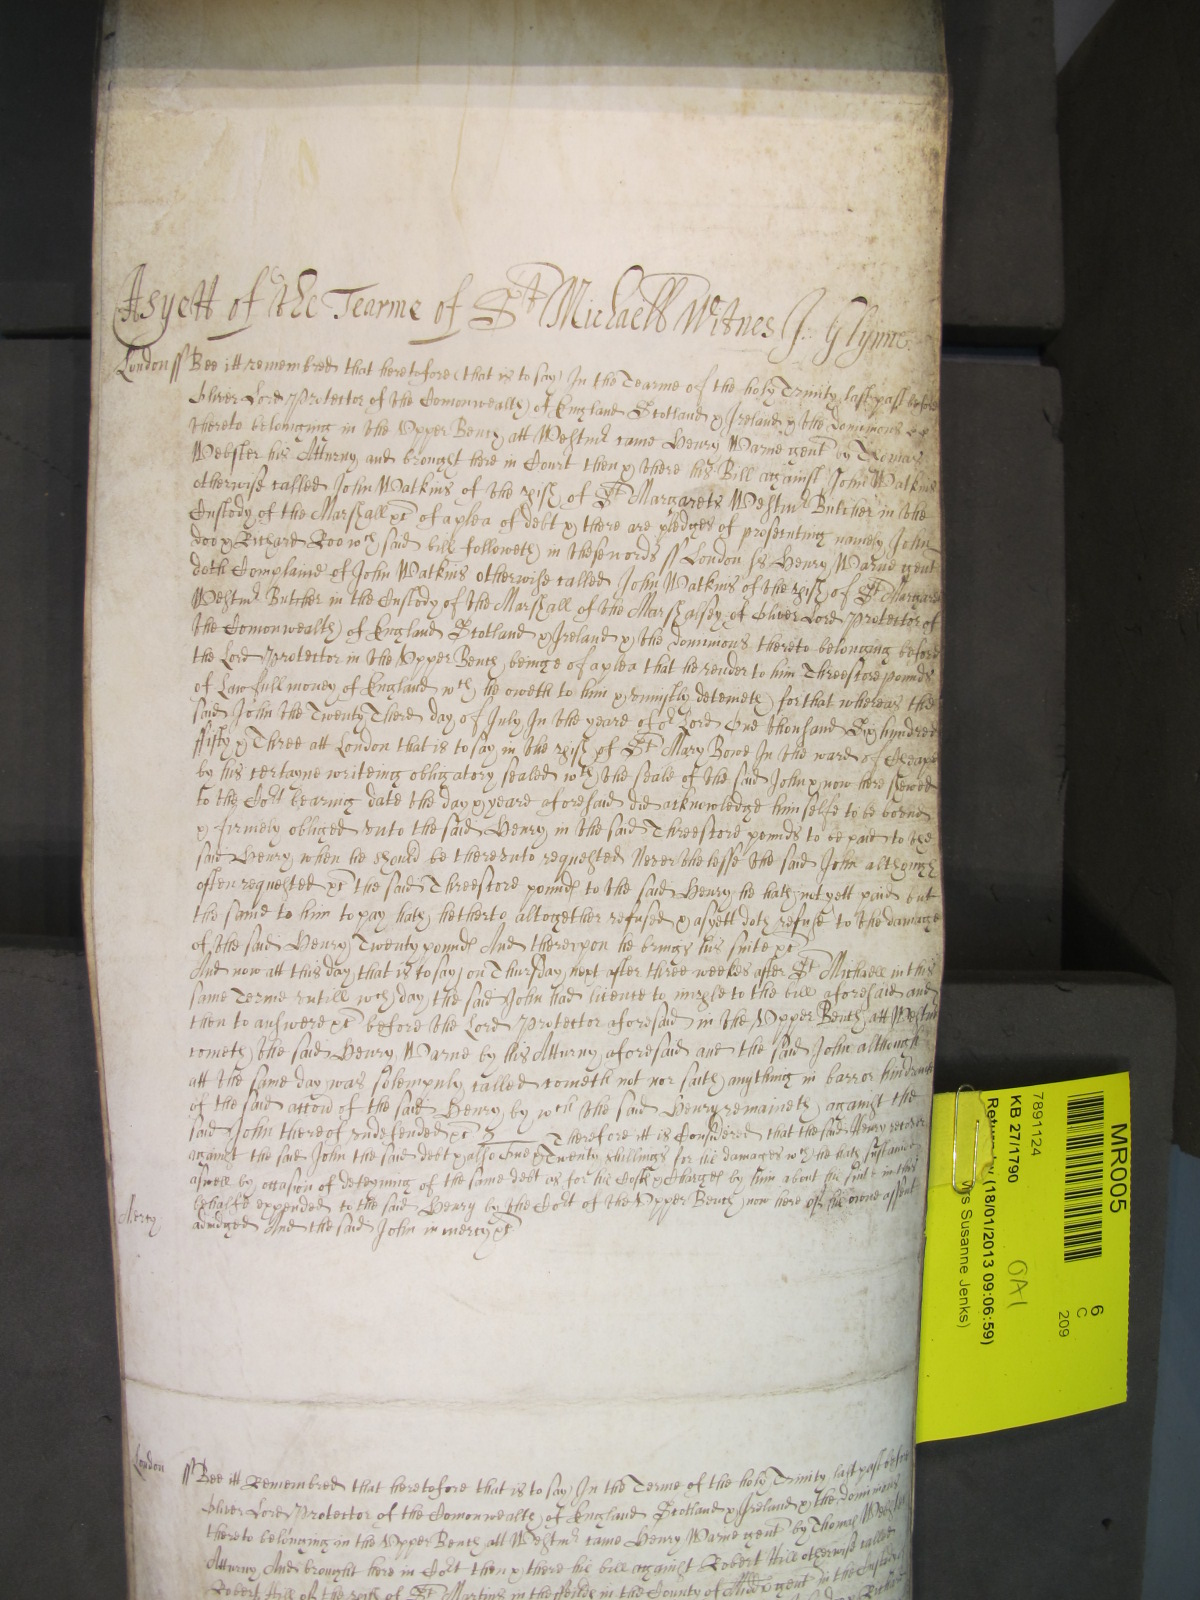 Asyett of the Tearme of St Michaell Witnes J: Glynne
London ss Bee itt remembred that heretofore (that is to say) In the Tearme of the holy Trinity last past before
Oliver Lord Protector of the Comonwealth of England Scotland & Ireland & the dominions
thereto belonging in the Upper Bench att Westmr came Henry Warne gent by Thomas
Webster his Atturny and brought here in Court then & there his Bill against John Watkins
otherwise called John Watkins of the pish of St Margaretts Westmr Butcher in the
Custody of the Marshall &c of a plea of debt & there are pledges of prosecuting namely John
doo & Richard Roo wch said bill followeth in these words ss London ss Henry Warne gent
doth Complaine of John Watkins otherwise called John Watkins of the pish of St Margaretts
Westmr Butcher in the Custody of the Marshall of the Marshalsey of Oliver Lord Protector of
the Comonwealth of England Scotland & Ireland & the dominions thereto belonging before
the Lord Protector in the Upper Bench beinge of a plea that he render to him Threescore pounds
of Lawfull money of England wch he oweth to him & uniustly deteineth for that whereas the
said John the Twenty There day of July In the yeare of or Lord One thousand Six hundred
ffifty & Three att London that is to say in the pish of St Mary Bowe In the ward of Cheape
by his certayne writeing obligatory sealed wth the seale of the said John & now here shewed
to the Cort bearing date the day & yeare aforesaid did acknowledge himselfe to be bound
& firmely obliged unto the said Henry in the said Threescore pounds to be paid to the
said Henry when he should be thereunto requested Neverthelesse the said John although
often requested &c the said Threescore pounds to the said Henry he hath not yett paid but
the same to him to pay hath hetherto altogether refused & asyett doth refuse to the damage
of the said Henry Twenty pounds And thereupon he brings his suite &c
And now att this day that is to say on Thursday next after three weekes after St Michaell in this
same Terme untill wch day the said John had licence to imple to the bill aforesaid and
then to answere &c before the Lord Protector aforesaid in the Upper Bench att Westmr
cometh the said Henry Warne by his Atturny aforesaid and the said John although
att the same day was solempnly called cometh not nor saith anything in barr or hindrance
of the said accon of the said Henry by wch the said Henry remaineth against the
said John thereof undefended &c Therefore itt is Considered that the said Henry recover
against the said John the said debt & also One & Twenty shillings for his damages wch he hath susteined
aswell by occasion of deteyning of the same debt as for his Costs & Charges by him about his suite in this
behalfe expended to the said Henry by the Cort of the Upper Bench now here of his owne assent
Mercy adiudged And the said John in mercy &c
London ss Bee itt Remembred that heretofore that is to say In the Terme of the holy Trinity last past before
Oliver Lord Protector of the Comonwealth of England Scotland & Ireland & the dominions
thereto belonging in the Upper Bench att Westmr came Henry Warne gent by Thomas Webster
Atturny And brought here in Cort then & there his bill against Robert Hill otherwise called
Robert Hill of the pish of St Martins in the ffeilds in the County of Midd gent in the Custody
MR005
6
C
209
7891124
KB 27/1790
OA1
(18/01/2013 09:06:59)
Susanne Jenks)